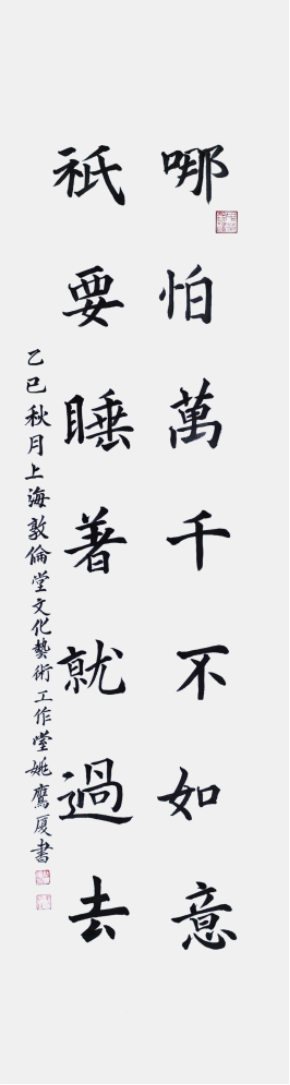 哪怕萬千不如意
祇要睡著就過去
乙巳秋月上海敦倫堂文化藝術工作堂姚鷹厦書